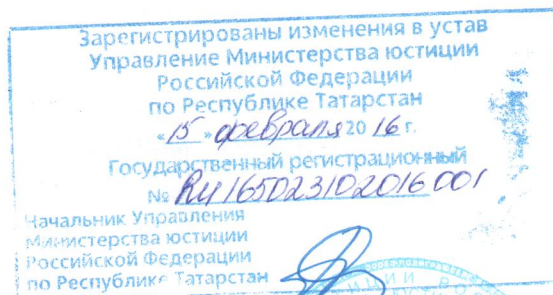 Зарегистрированы изменения в устав
Управление Министерства юстиции
Российской Федерации
по Республике Татарстан
«15» февраля 2016 г.
Государственный регистрационный
№ RU165023102016001
Начальник Управления
Министерства юстиции
Российской Федерации
по Республике Татарстан